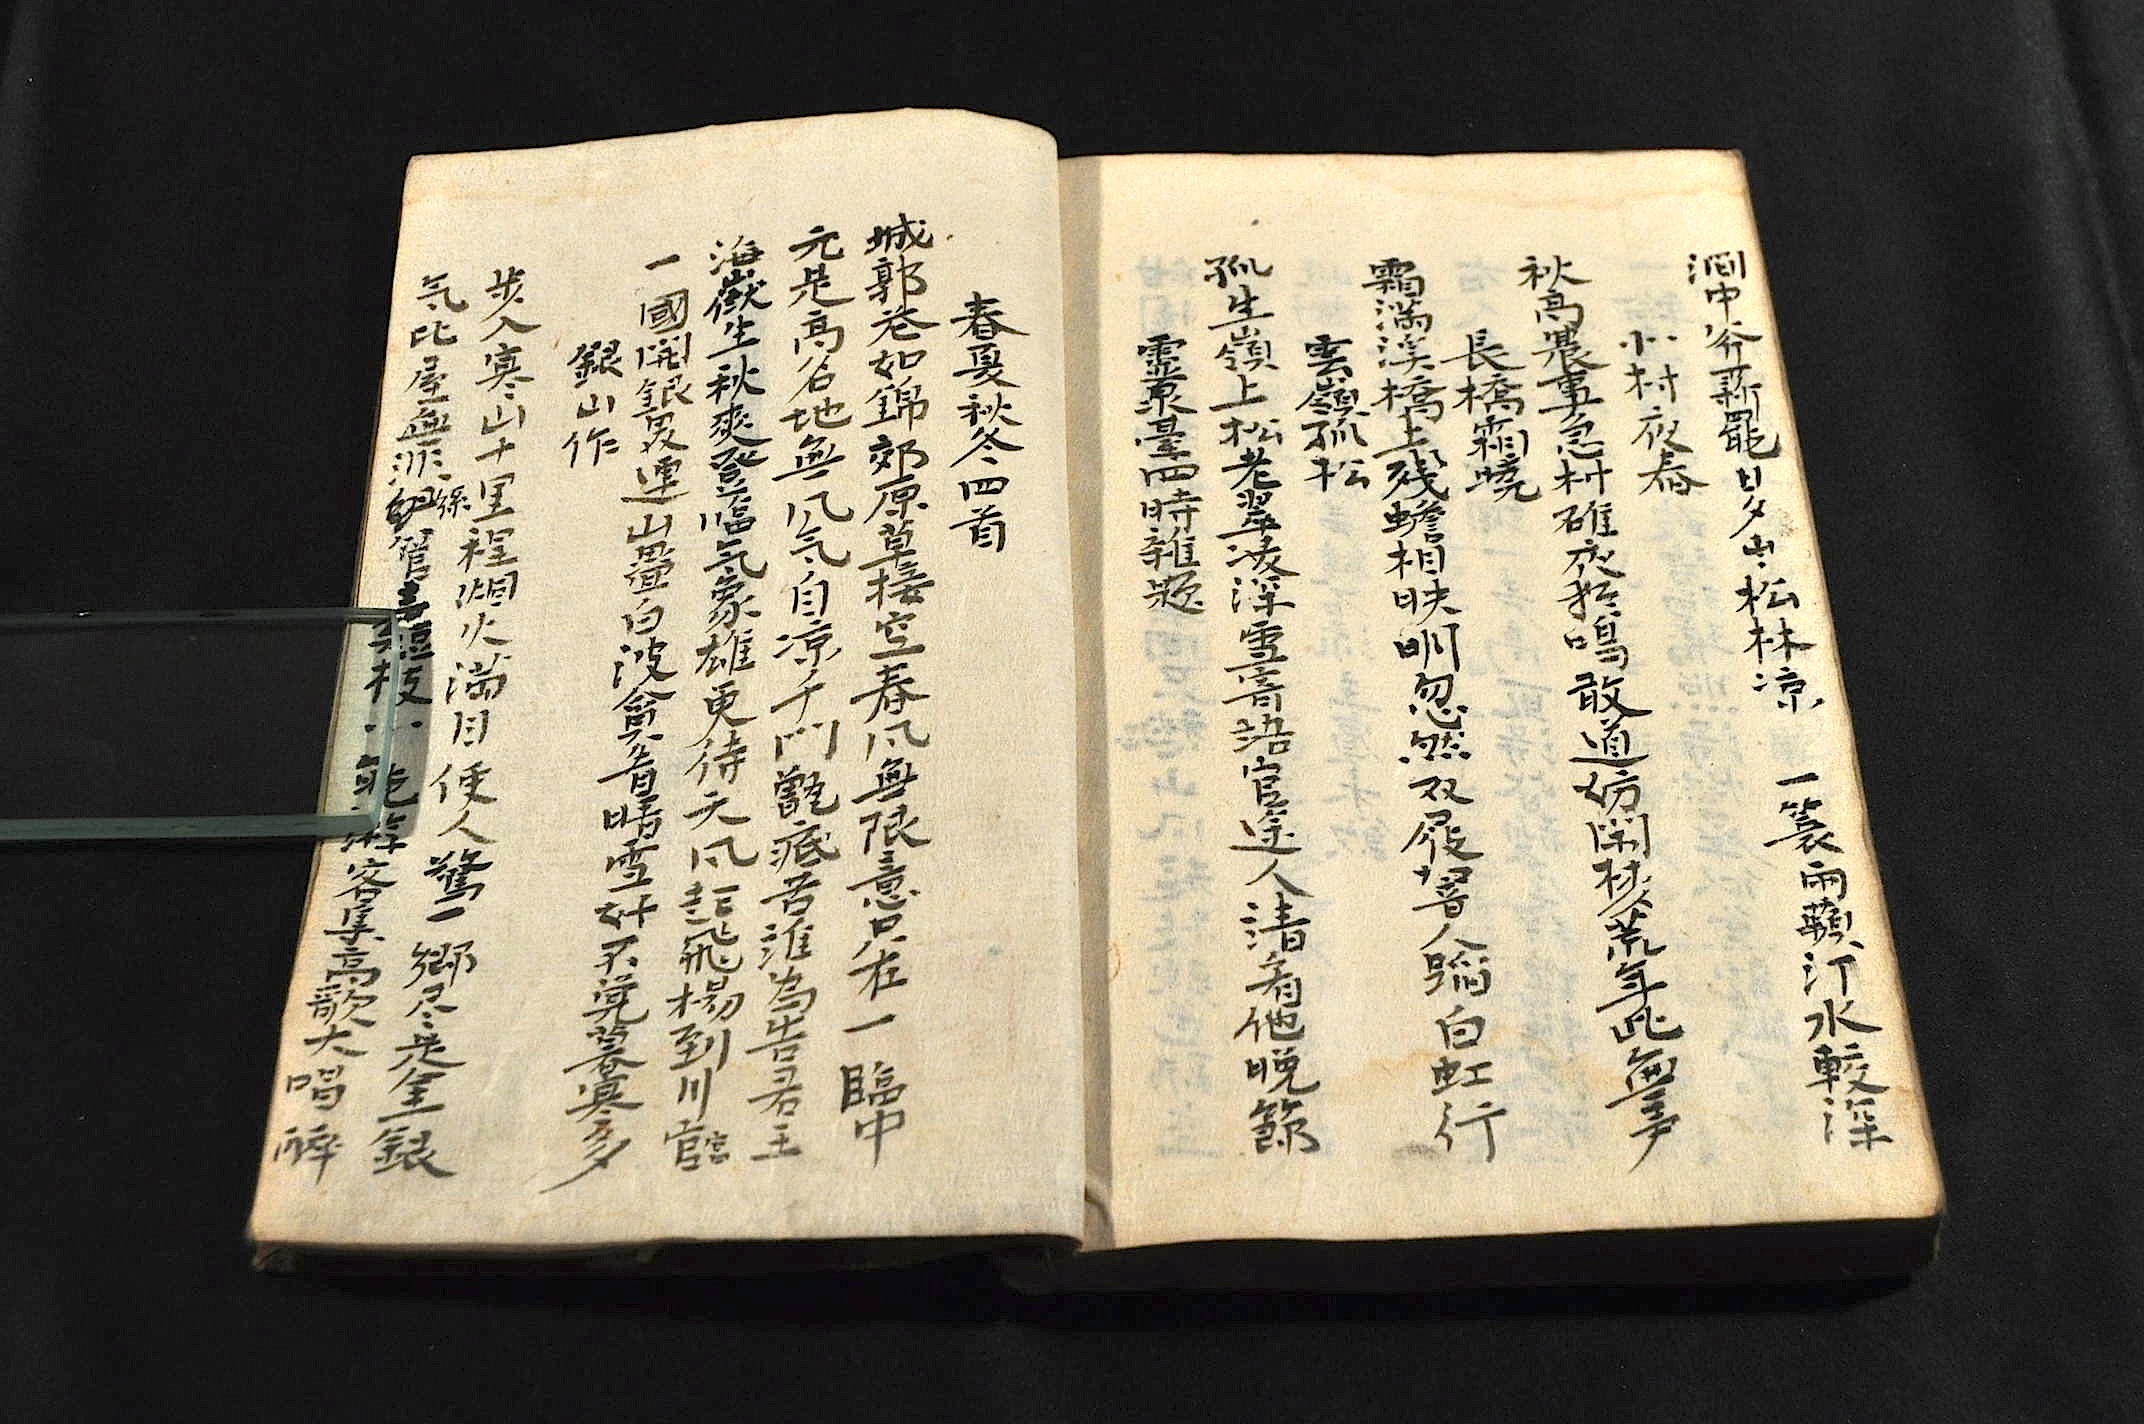 澗中斧斤罷日夕山松林凉 一簑雨蘋汀水較深
小村夜舂
秋高農事急村碓夜猶鳴敢道妨閑枕荒年此無声
長橋霜曉
霜滿溪橋上残蟾相映明忽然双屐響人蹈白虹行
雲嶺孤松
孤生嶺上松老翠凌深雪寄語官途人請看他晚節
靈泉臺四時雜題
春夏秋冬四首
城郭花如錦郊原草接空春風無限意只在一臨中
元是高名地無風气自凉千門甑底苦誰為告君王
海嶽生秋爽登臨气象雄更待天風起飛楊到川宮
一國開銀界連山疊白波貪看晴雪好不覚暮寒多
銀山作
步入寒山十里程烟火滿目使人驚一鄉尽是金銀
气比屋無非絲管 游客集高歌大唱醉